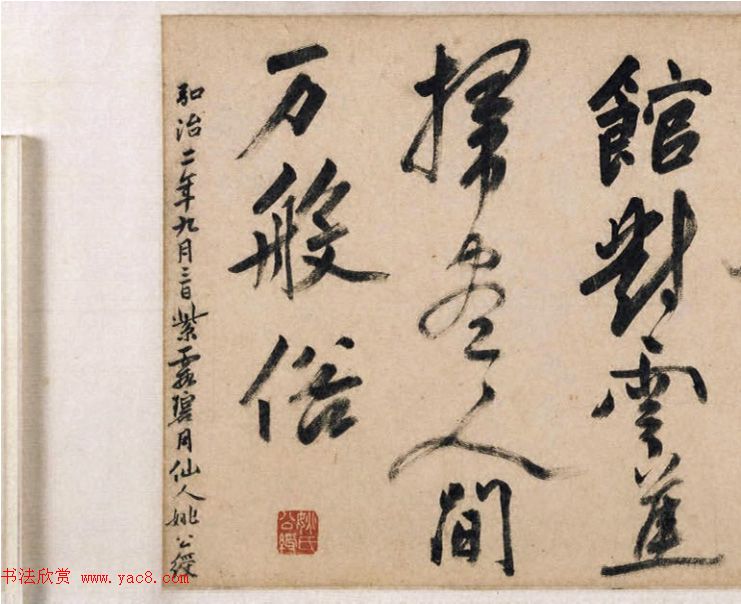 館對雲蕉
掃盡人間
万般俗
弘治二年九月三日紫霞碧月仙人姚公綬
姚氏公綬
书法欣赏 www.yac8.com